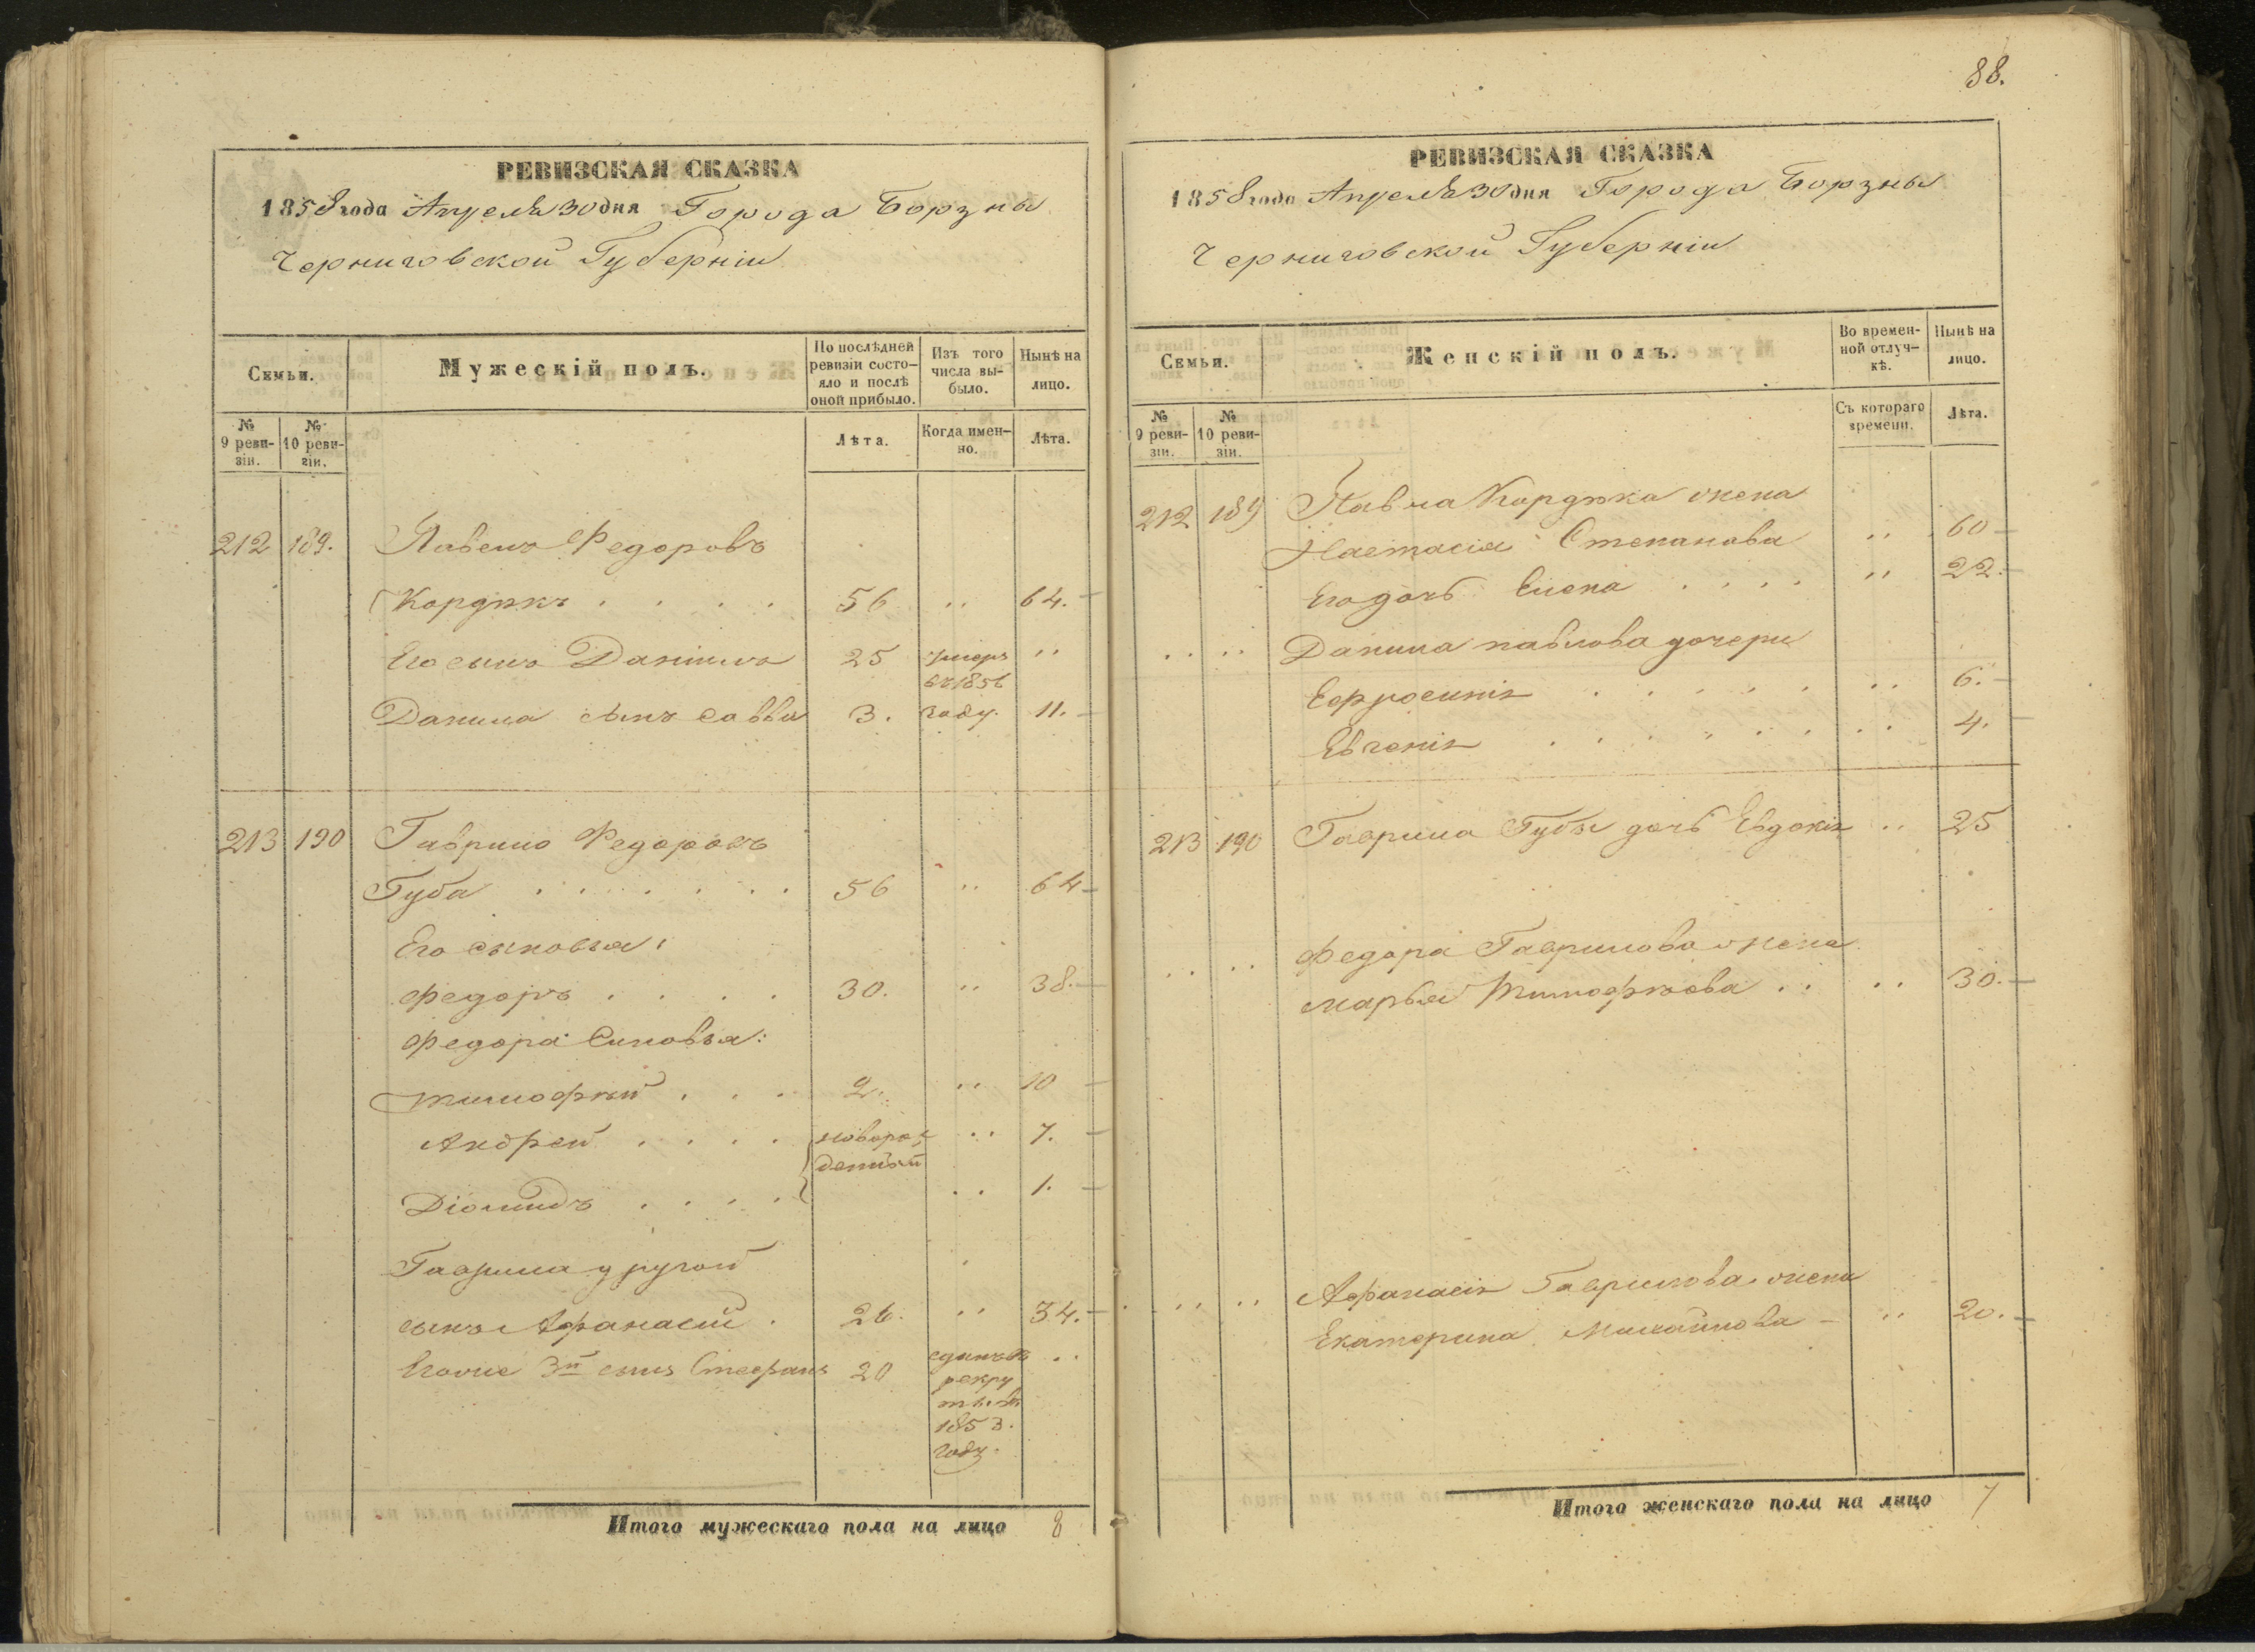 РЕВИЗСКАЯ СКАЗКА
1858 года Апреля 30 дня Города Борзны
Черниговской Губерніи
Семьи.
Мужескій полъ.
По послѣдней ревизіи состояло и послѣ оной прибыло.
Изъ того числа выбыло.
Нынѣ на лицо.
№ 9 ревизіи.
№ 10 ревизіи.
Лѣта.
Когда именно.
Лѣта.
212 189. Павелъ Федоровъ
Кордикъ . . . . 56 " 64.-
Его сынъ Даніилъ 25 умеръ "
въ 1856
Данила сынъ Савва 3. году. 11.-
213 190 Гаврило Федоровъ
Губа . . . . . . 56 " 64-
Его сыновья:
Федоръ . . . . 30. " 38.-
Федора Синовья:
Тимофѣй . . . 2. " 10 -
Андрей . . . . новорож " 7. -
денный
Діомидъ . . . . " 1. -
Гаврила другой
сынъ Афанасій . 26. " 34.-
Егоже 3й сынъ Стефанъ 20 сданъ въ "
рекру
ты въ
1853.
году.
Итого мужескаго пола на лицо 8
88.
РЕВИЗСКАЯ СКАЗКА
1858 года Апреля 30 дня Города Борзны
Черниговской Губерніи
Семьи.
Женскій полъ.
Во временной отлучкѣ.
Нынѣ на лицо.
№ 9 ревизіи.
№ 10 ревизіи.
Съ котораго времени.
Лѣта.
212 189 Павла Кордика жена
Настасія Степанова " 60-
Его дочь Елена . . . . " 22.-
" " Данила павлова дочери
Ефросинія . . . . . " 6.-
Евгенія . . . . . . " 4. -
213 190 Гаврила Губы дочь Евдокія " 25
" " Федора Гаврилова жена
Марья Тимофѣева . . " 30.-
" " Афанасія Гаврилова жена
Екатерина Михайлова - " 20.-
Итого женскаго пола на лицо 7